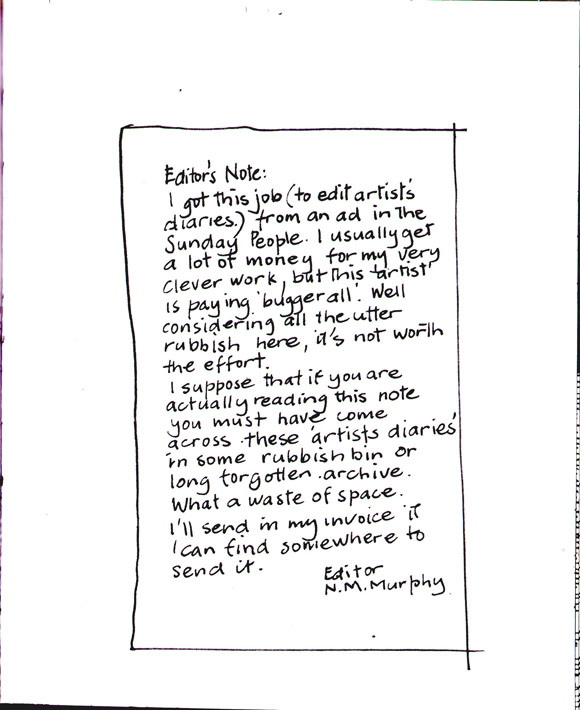 Editor's Note:
I got this job (to edit artist's
diaries.) from an ad in the
Sunday People. I usually get
a lot of money for my very
clever work, but this 'artist'
is paying 'bugger all'. Well
considering all the utter
rubbish here, it's not worth
the effort.
I suppose that if you are
actually reading this note
you must have come
across these 'artists diaries'
in some rubbish bin or
long forgotten archive.
What a waste of space.
I'll send in my invoice if
I can find somewhere to
send it.
Editor
N.M. Murphy